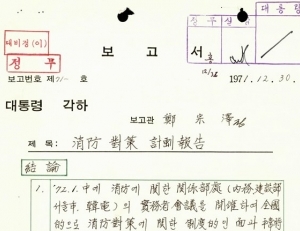 대통령
정무
보고서
12/28
보고번호 제 71- 호
1971. 12. 30.
대통령 각하
보고관 鄭宗澤
제목: 消防對策 計劃報告
結論
1. '72.1. 中에 消防에 関한 関係部處(内務, 建設部
서울市, 韓電)의 実務者會議를 開催하여 全國
的으로 消防對策에 関한 制度的인 面과